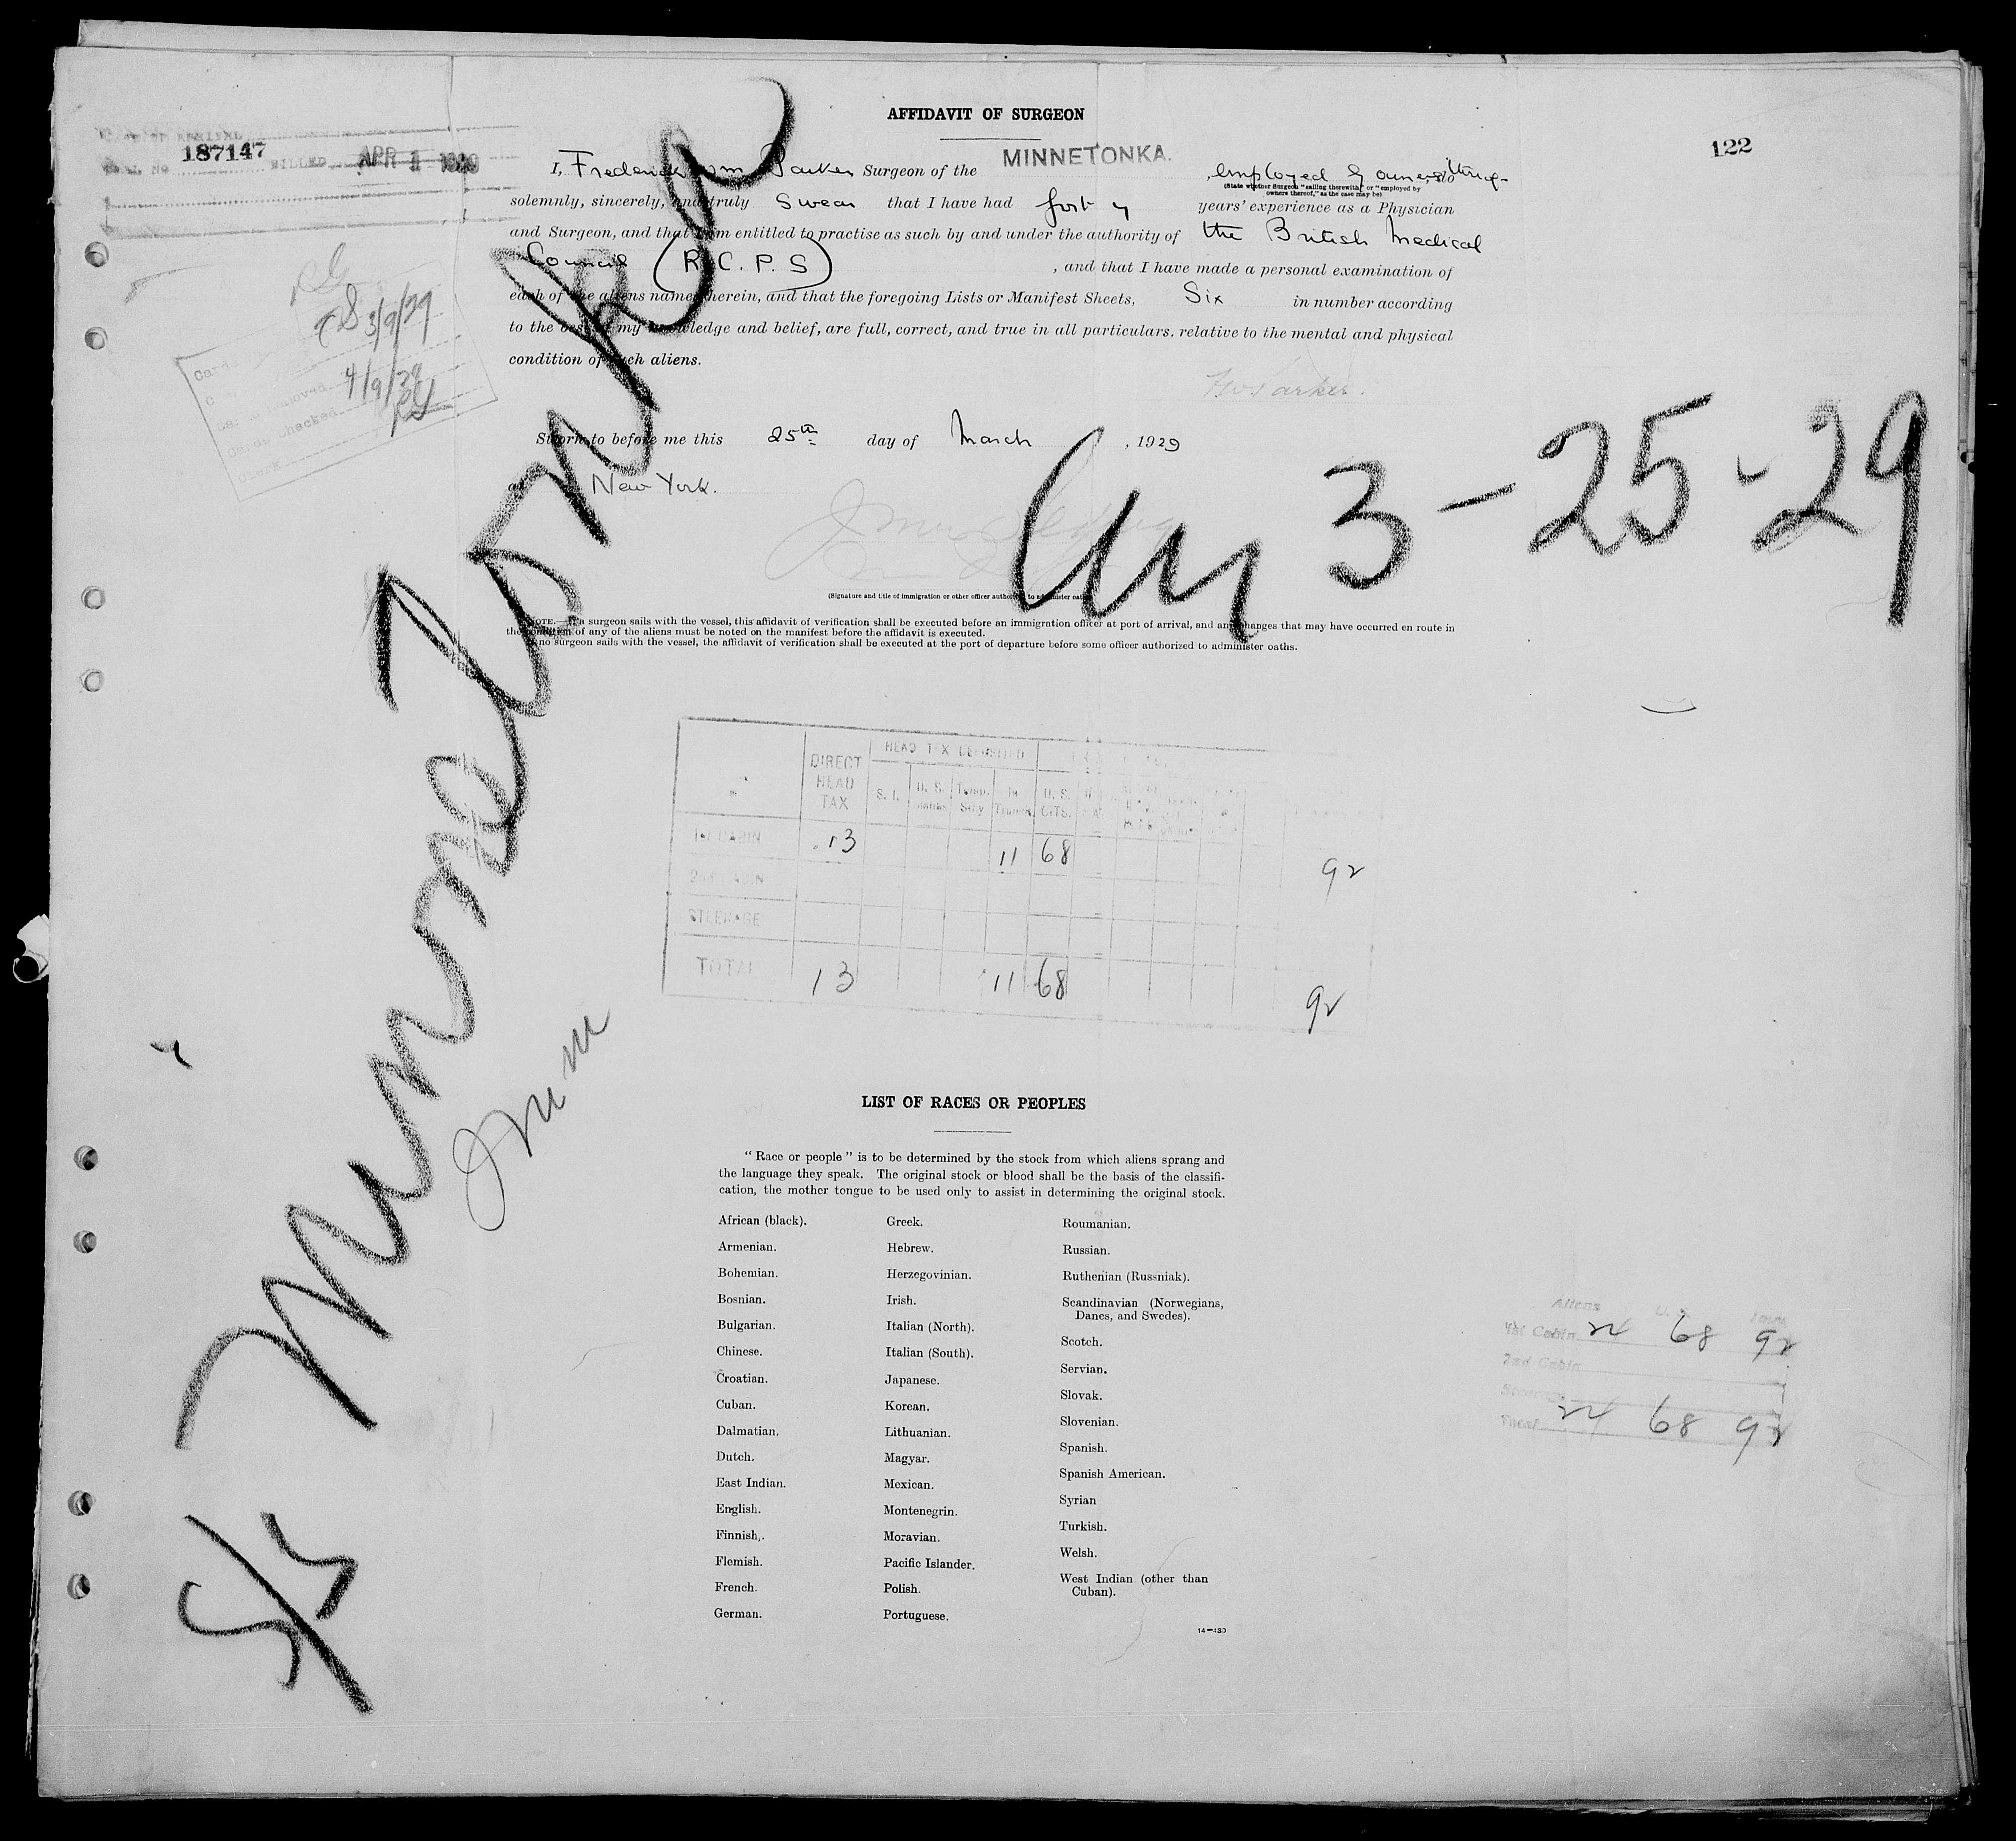 AFFIDAVIT OF SURGEON
187147 BILLED APR 1 1929
122
I, Frederick Wm Parker Surgeon of the MINNETONKA. , employed by owners thereof
(State whether Surgeon “sailing therewith,” or “employed by
owners thereof,” as the case may be)
solemnly, sincerely, and truly Swear that I have had forty years' experience as a Physician
and Surgeon, and that I am entitled to practise as such by and under the authority of the British Medical
Council (R.C.P.S) , and that I have made a personal examination of
each of the aliens named herein, and that the foregoing Lists or Manifest Sheets, Six in number according
to the best of my knowledge and belief, are full, correct, and true in all particulars, relative to the mental and physical
condition of such aliens.
3/9/29
4/9/29
Cards Checked
FW Parker.
Sworn to before me this 25th day of March , 1929
at New York.
(Signature and title of immigration or other officer authorized to administer oaths)
Arr 3-25-29
S/S Minnetonka
NOTE.—If a surgeon sails with the vessel, this affidavit of verification shall be executed before an immigration officer at port of arrival, and any changes that may have occurred en route in
the condition of any of the aliens must be noted on the manifest before the affidavit is executed.
If no surgeon sails with the vessel, the affidavit of verification shall be executed at the port of departure before some officer authorized to administer oaths.
HEAD TAX DEPOSITED
DIRECT HEAD TAX S. I. U. S. Temp. Stay In Transit U. S. CITS.
1st CABIN 13 11 68 92
2nd CABIN
STEERAGE
TOTAL 13 11 68 92
LIST OF RACES OR PEOPLES
“ Race or people ” is to be determined by the stock from which aliens sprang and
the language they speak. The original stock or blood shall be the basis of the classifi-
cation, the mother tongue to be used only to assist in determining the original stock.
African (black).
Armenian.
Bohemian.
Bosnian.
Bulgarian.
Chinese.
Croatian.
Cuban.
Dalmatian.
Dutch.
East Indian.
English.
Finnish.
Flemish.
French.
German.
Greek.
Hebrew.
Herzegovinian.
Irish.
Italian (North).
Italian (South).
Japanese.
Korean.
Lithuanian.
Magyar.
Mexican.
Montenegrin.
Moravian.
Pacific Islander.
Polish.
Portuguese.
Roumanian.
Russian.
Ruthenian (Russniak).
Scandinavian (Norwegians,
Danes, and Swedes).
Scotch.
Servian.
Slovak.
Slovenian.
Spanish.
Spanish American.
Syrian
Turkish.
Welsh.
West Indian (other than
Cuban).
14—430
Aliens U. S. Total
1st Cabin 24 68 92
2nd Cabin
Steerage
Total 24 68 92